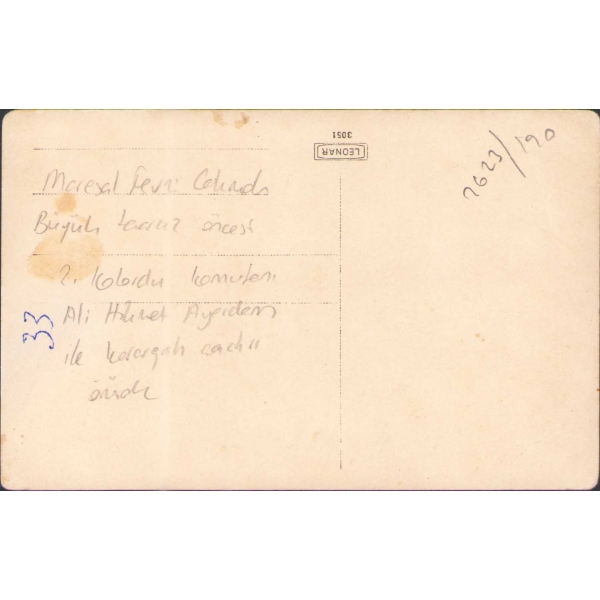 3051
LEONAR
2623/190
Mareşal Fevzi Çakmak
Büyük taarruz öncesi
2. Kolordu komutanı
Ali Hikmet Ayerdem
ile karargah çadırı
önünde
33